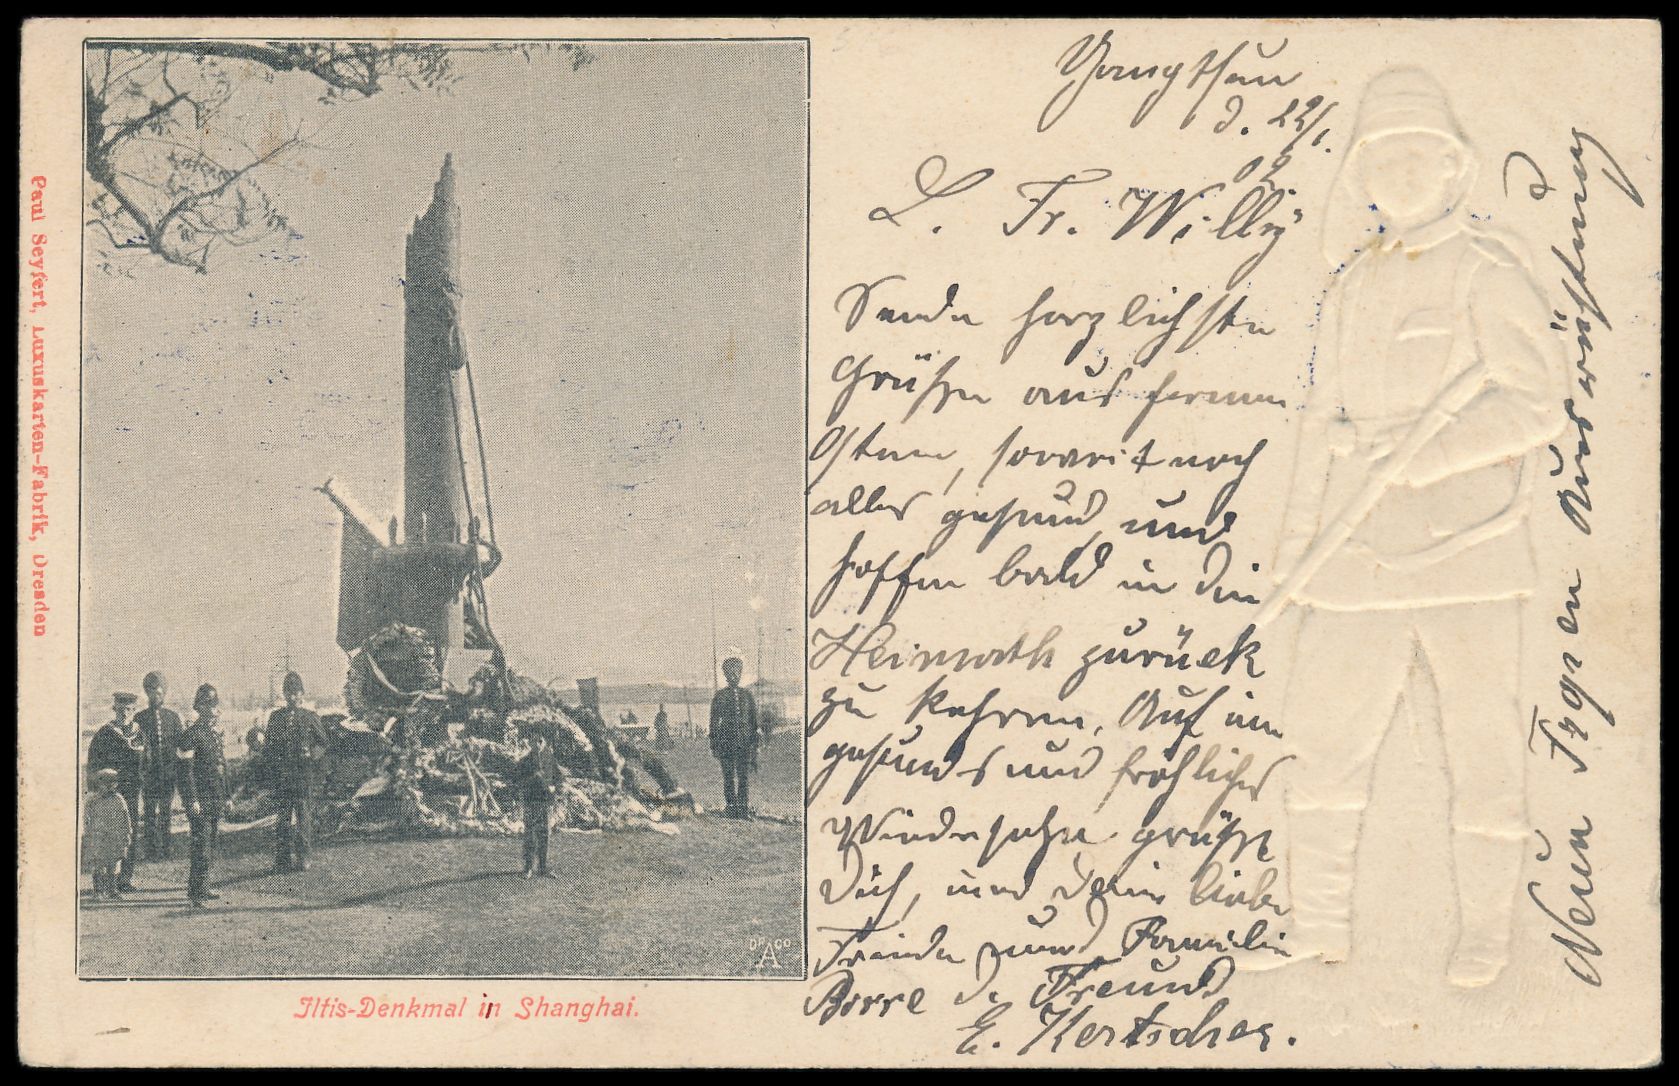 Paul Seyfert, Luxuskarten-Fabrik, Dresden
Iltis-Denkmal in Shanghai.
DR A CO
Yangtsun
d. 22/1.
02
L. Fr. Willy
Sende herzlichste
Grüße aus fernem
Osten, soweit noch
alles gesund, und
hoffen bald in die
Heimath zurück
zu kehren. Auf ein
gesundes und fröhliches
Wiedersehn grüßt
Dich, und Deine liebe
Freunde und Familie
d. Freund
E. Kertscher.
Neue Tropen Ausrüstung